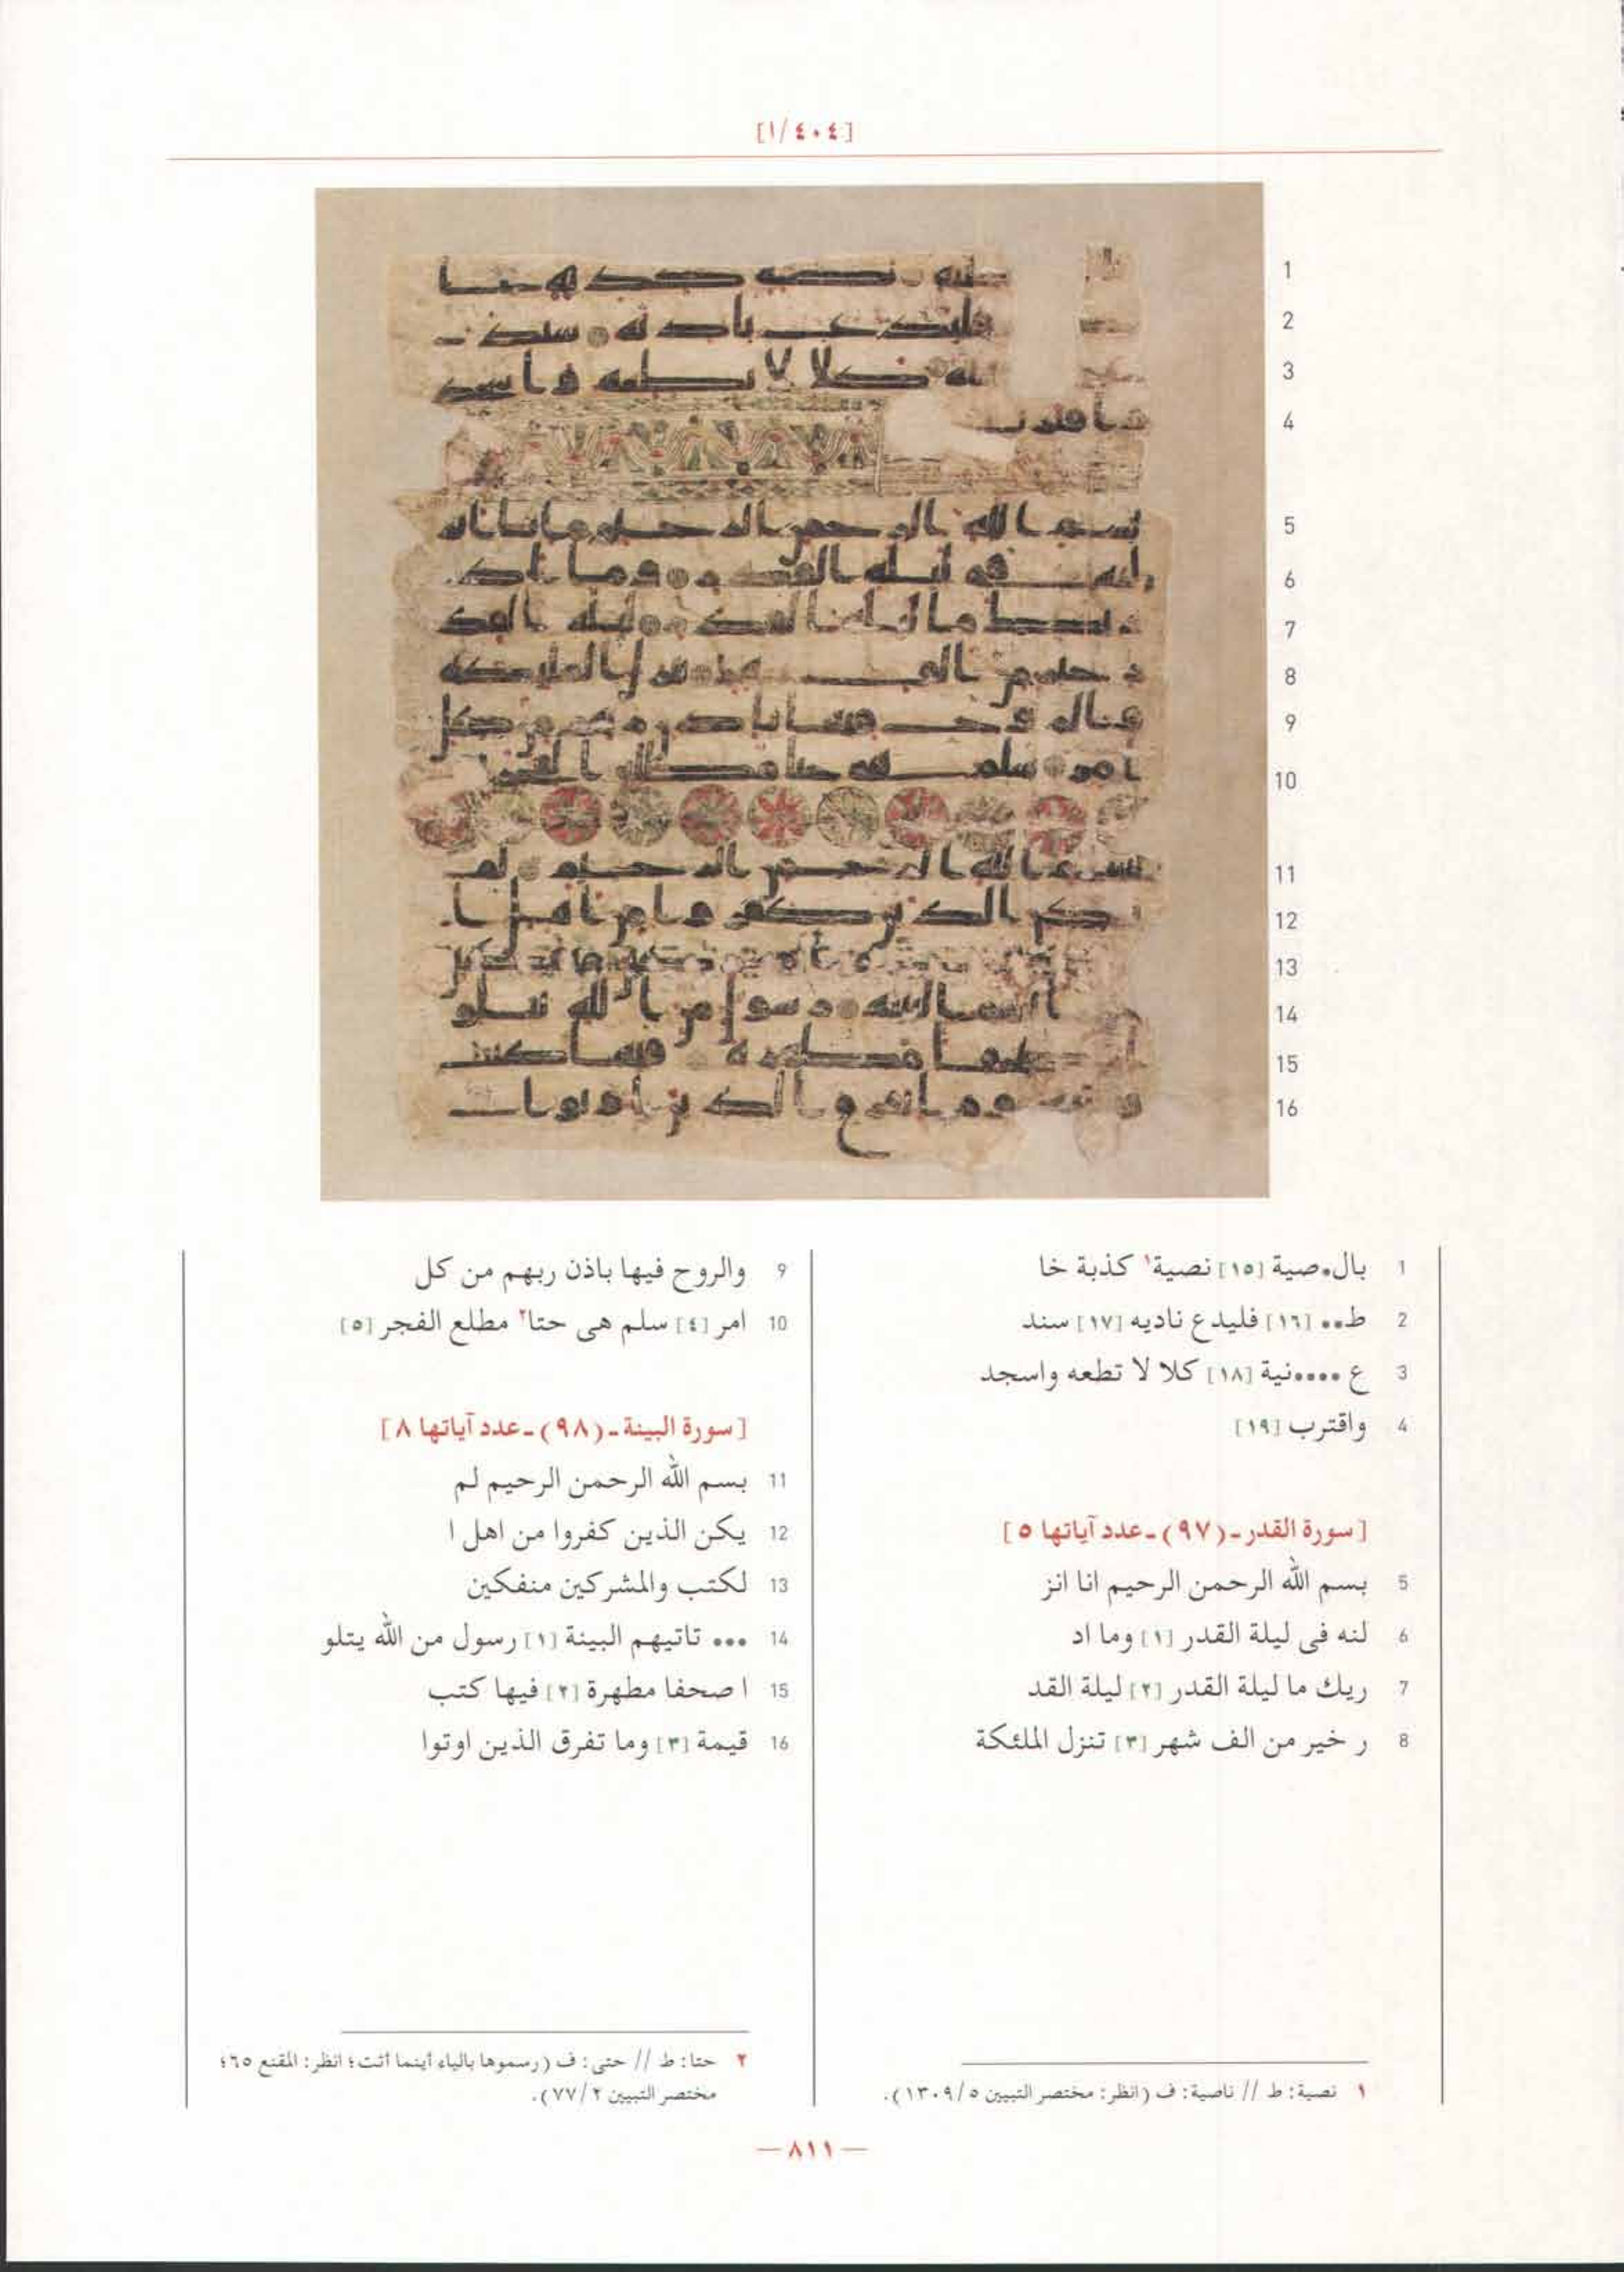 [٤٠٤/١]
1
2
3
4
5
6
7
8
9
10
11
12
13
14
15
16
1 بال•صية [١٥] نصية١ كذبة خا
2 ط•• [١٦] فليدع ناديه [١٧] سند
3 ع ••••نية [١٨] كلا لا تطعه واسجد
4 واقترب [١٩]
[سورة القدر ـ (٩٧) ـ عدد آياتها ٥]
5 بسم الله الرحمن الرحيم انا انز
6 لنه فى ليلة القدر [١] وما اد
7 ريك ما ليلة القدر [٢] ليلة القد
8 ر خير من الف شهر [٣] تنزل الملئكة
١ نصية: ط // ناصية: ف (انظر: مختصر التبيين ٥/١٣٠٩).
9 والروح فيها باذن ربهم من كل
10 امر [٤] سلم هى حتا٢ مطلع الفجر [٥]
[سورة البينة ـ (٩٨) ـ عدد آياتها ٨]
11 بسم الله الرحمن الرحيم لم
12 يكن الذين كفروا من اهل ا
13 لكتب والمشركين منفكين
14 ••• تاتيهم البينة [١] رسول من الله يتلو
15 ا صحفا مطهرة [٢] فيها كتب
16 قيمة [٣] وما تفرق الذين اوتوا
٢ حتا: ط // حتى: ف (رسموها بالياء أينما أتت؛ انظر: المقنع ٦٥؛
مختصر التبيين ٢/٧٧).
— ٨١١ —